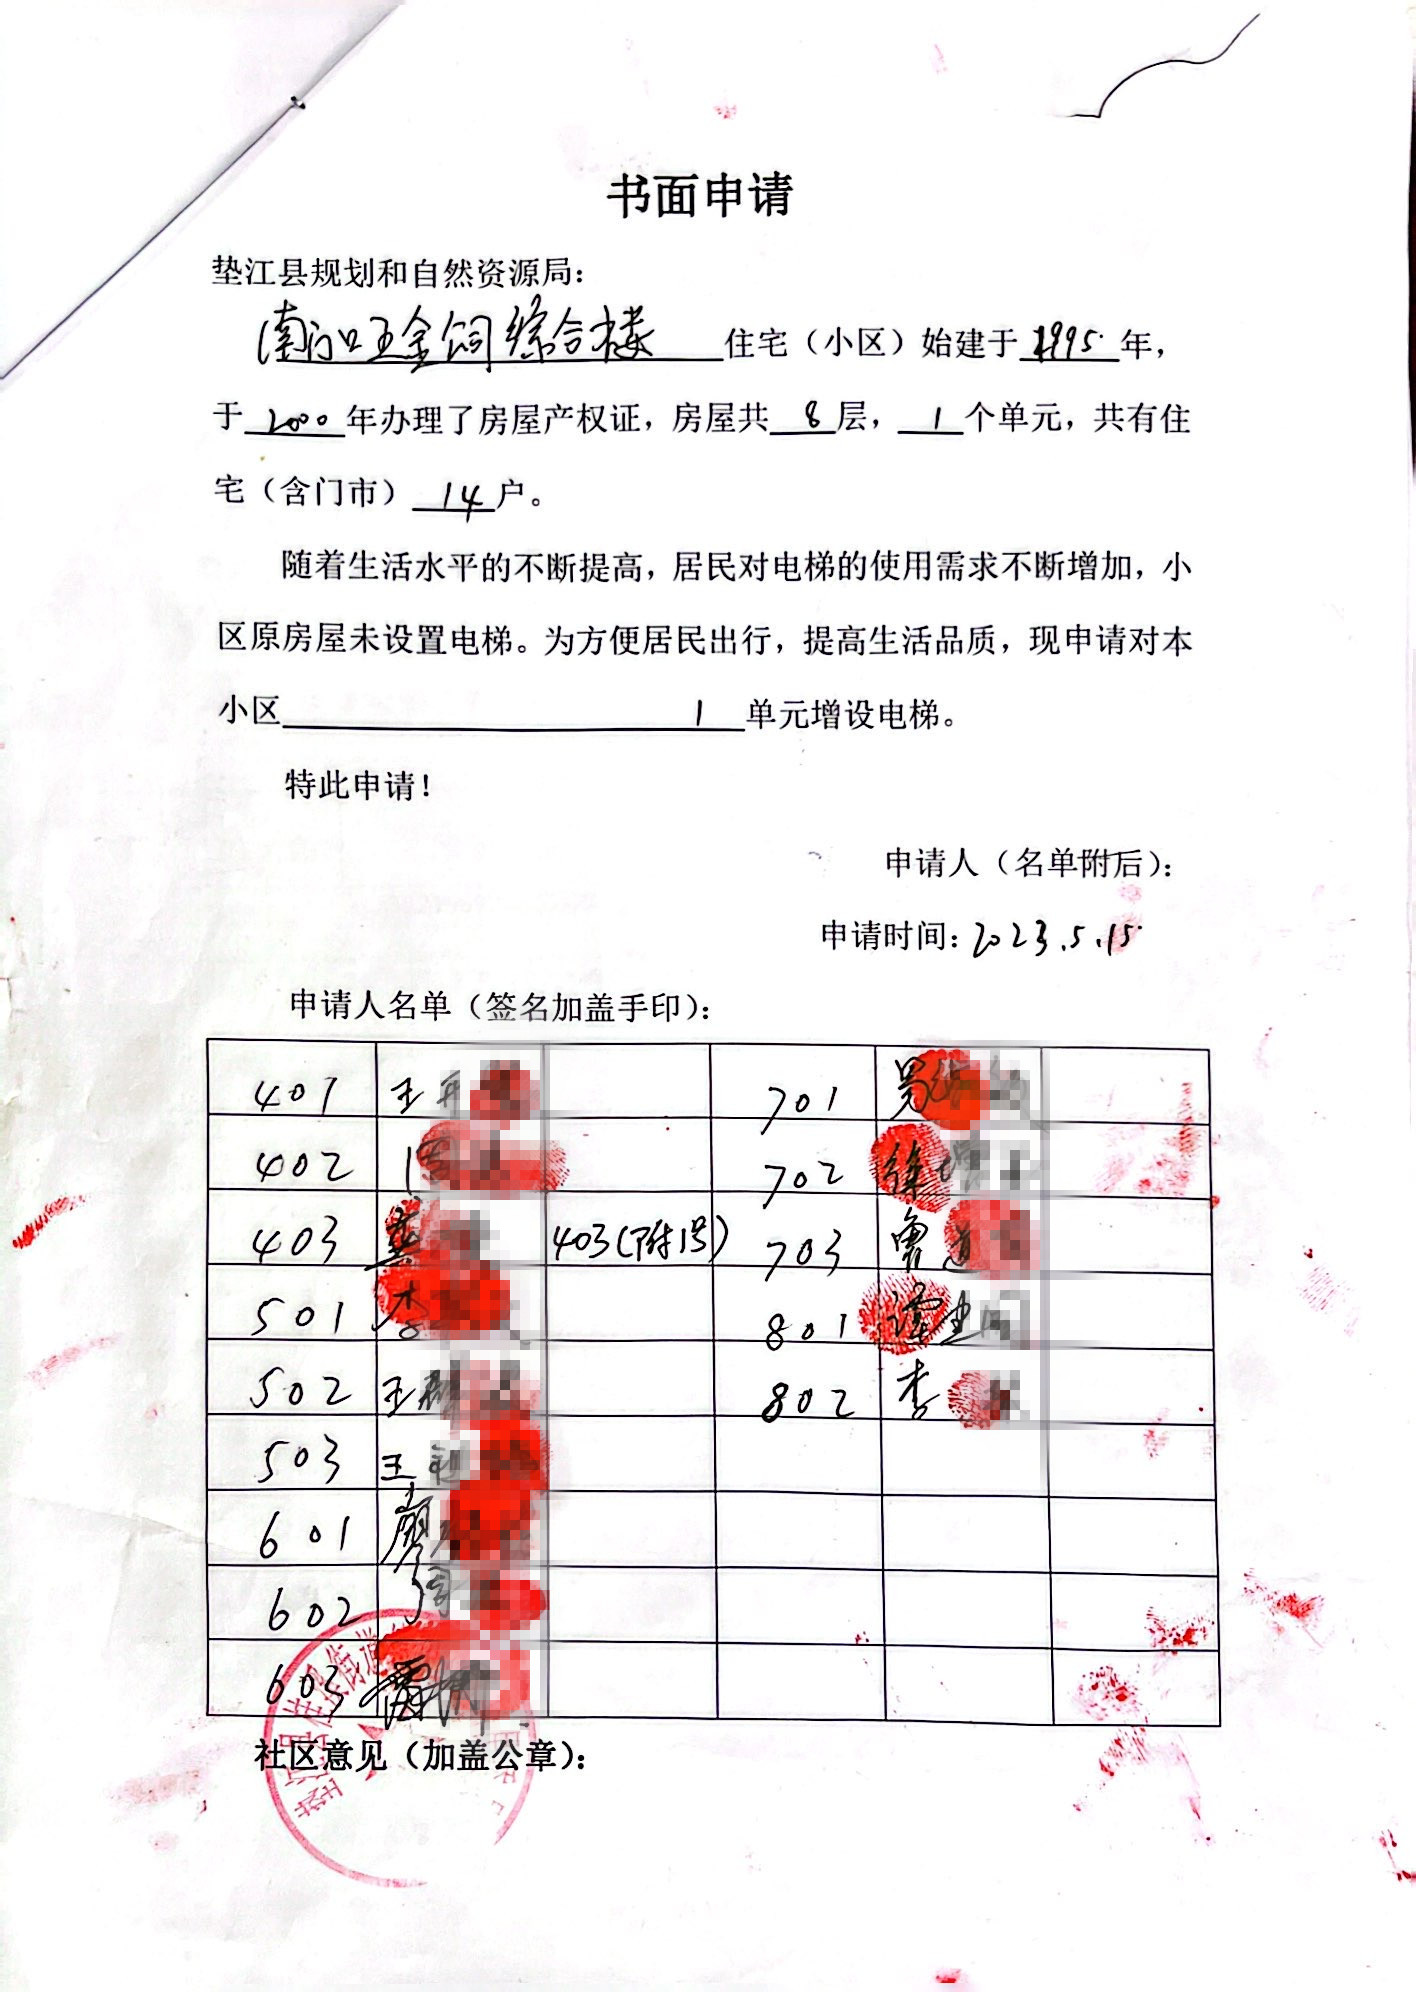 书面申请
垫江县规划和自然资源局：
南门口五金公司综合楼 住宅（小区）始建于 1995 年，
于 2000 年办理了房屋产权证，房屋共 8 层， 1 个单元，共有住
宅（含门市） 14 户。
随着生活水平的不断提高，居民对电梯的使用需求不断增加，小
区原房屋未设置电梯。为方便居民出行，提高生活品质，现申请对本
小区 1 单元增设电梯。
特此申请！
申请人（名单附后）：
申请时间：2023.5.15
申请人名单（签名加盖手印）：
401 王 701
402 702 徐
403 龚 403(附1号) 703 曾道
501 李 801 谭
502 王 802 李
503 王
601 廖
602
603
社区意见（加盖公章）：
垫江县桂阳街道